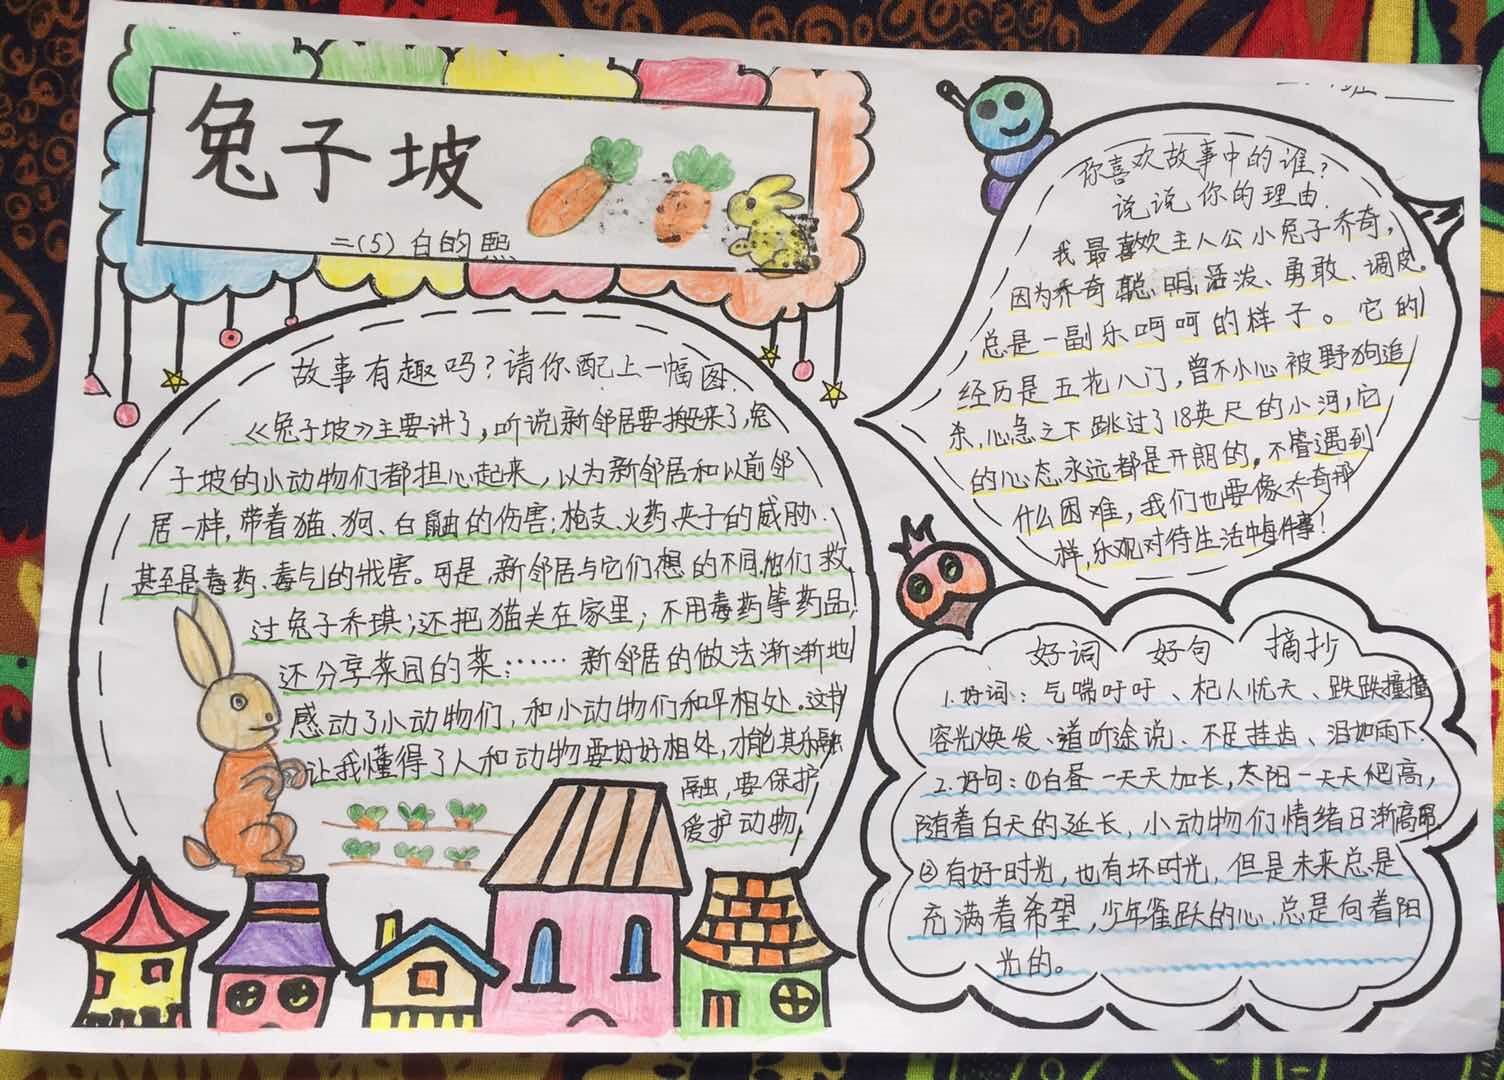 兔子坡
二(5) 白的熙
故事有趣吗?请你配上一幅图.
《兔子坡》主要讲了,听说新邻居要搬来了,兔
子坡的小动物们都担心起来,以为新邻居和以前邻
居一样,带着猫、狗、白鼬的伤害;枪支、火药、夹子的威胁、
甚至是毒药、毒气的戕害。可是,新邻居与它们想的不同,他们救
过兔子乔琪;还把猫关在家里;不用毒药等药品;
还分享菜园的菜;……新邻居的做法渐渐地
感动了小动物们,和小动物们和平相处。这
让我懂得了人和动物要好好相处,才能其乐融
融,要保护,
爱护动物,
你喜欢故事中的谁?
说说你的理由.
我最喜欢主人公小兔子乔奇,
因为乔奇聪明、活泼、勇敢、调皮。
总是一副乐呵呵的样子。它的
经历是五花八门,曾不小心被野狗追
杀,心急之下跳过了18英尺的小河,它
的心态永远都是开朗的。不管遇到
什么困难,我们也要像乔奇那
样,乐观对待生活中每件事!
好词 好句 摘抄
1.好词:气喘吁吁、杞人忧天、跌跌撞撞
容光焕发、道听途说、不足挂齿、泪如雨下
2.好句:①白昼一天天加长,太阳一天天升高,
随着白天的延长,小动物们情绪日渐高昂.
②有好时光,也有坏时光,但是未来总是
充满着希望,少年雀跃的心,总是向着阳
光的。